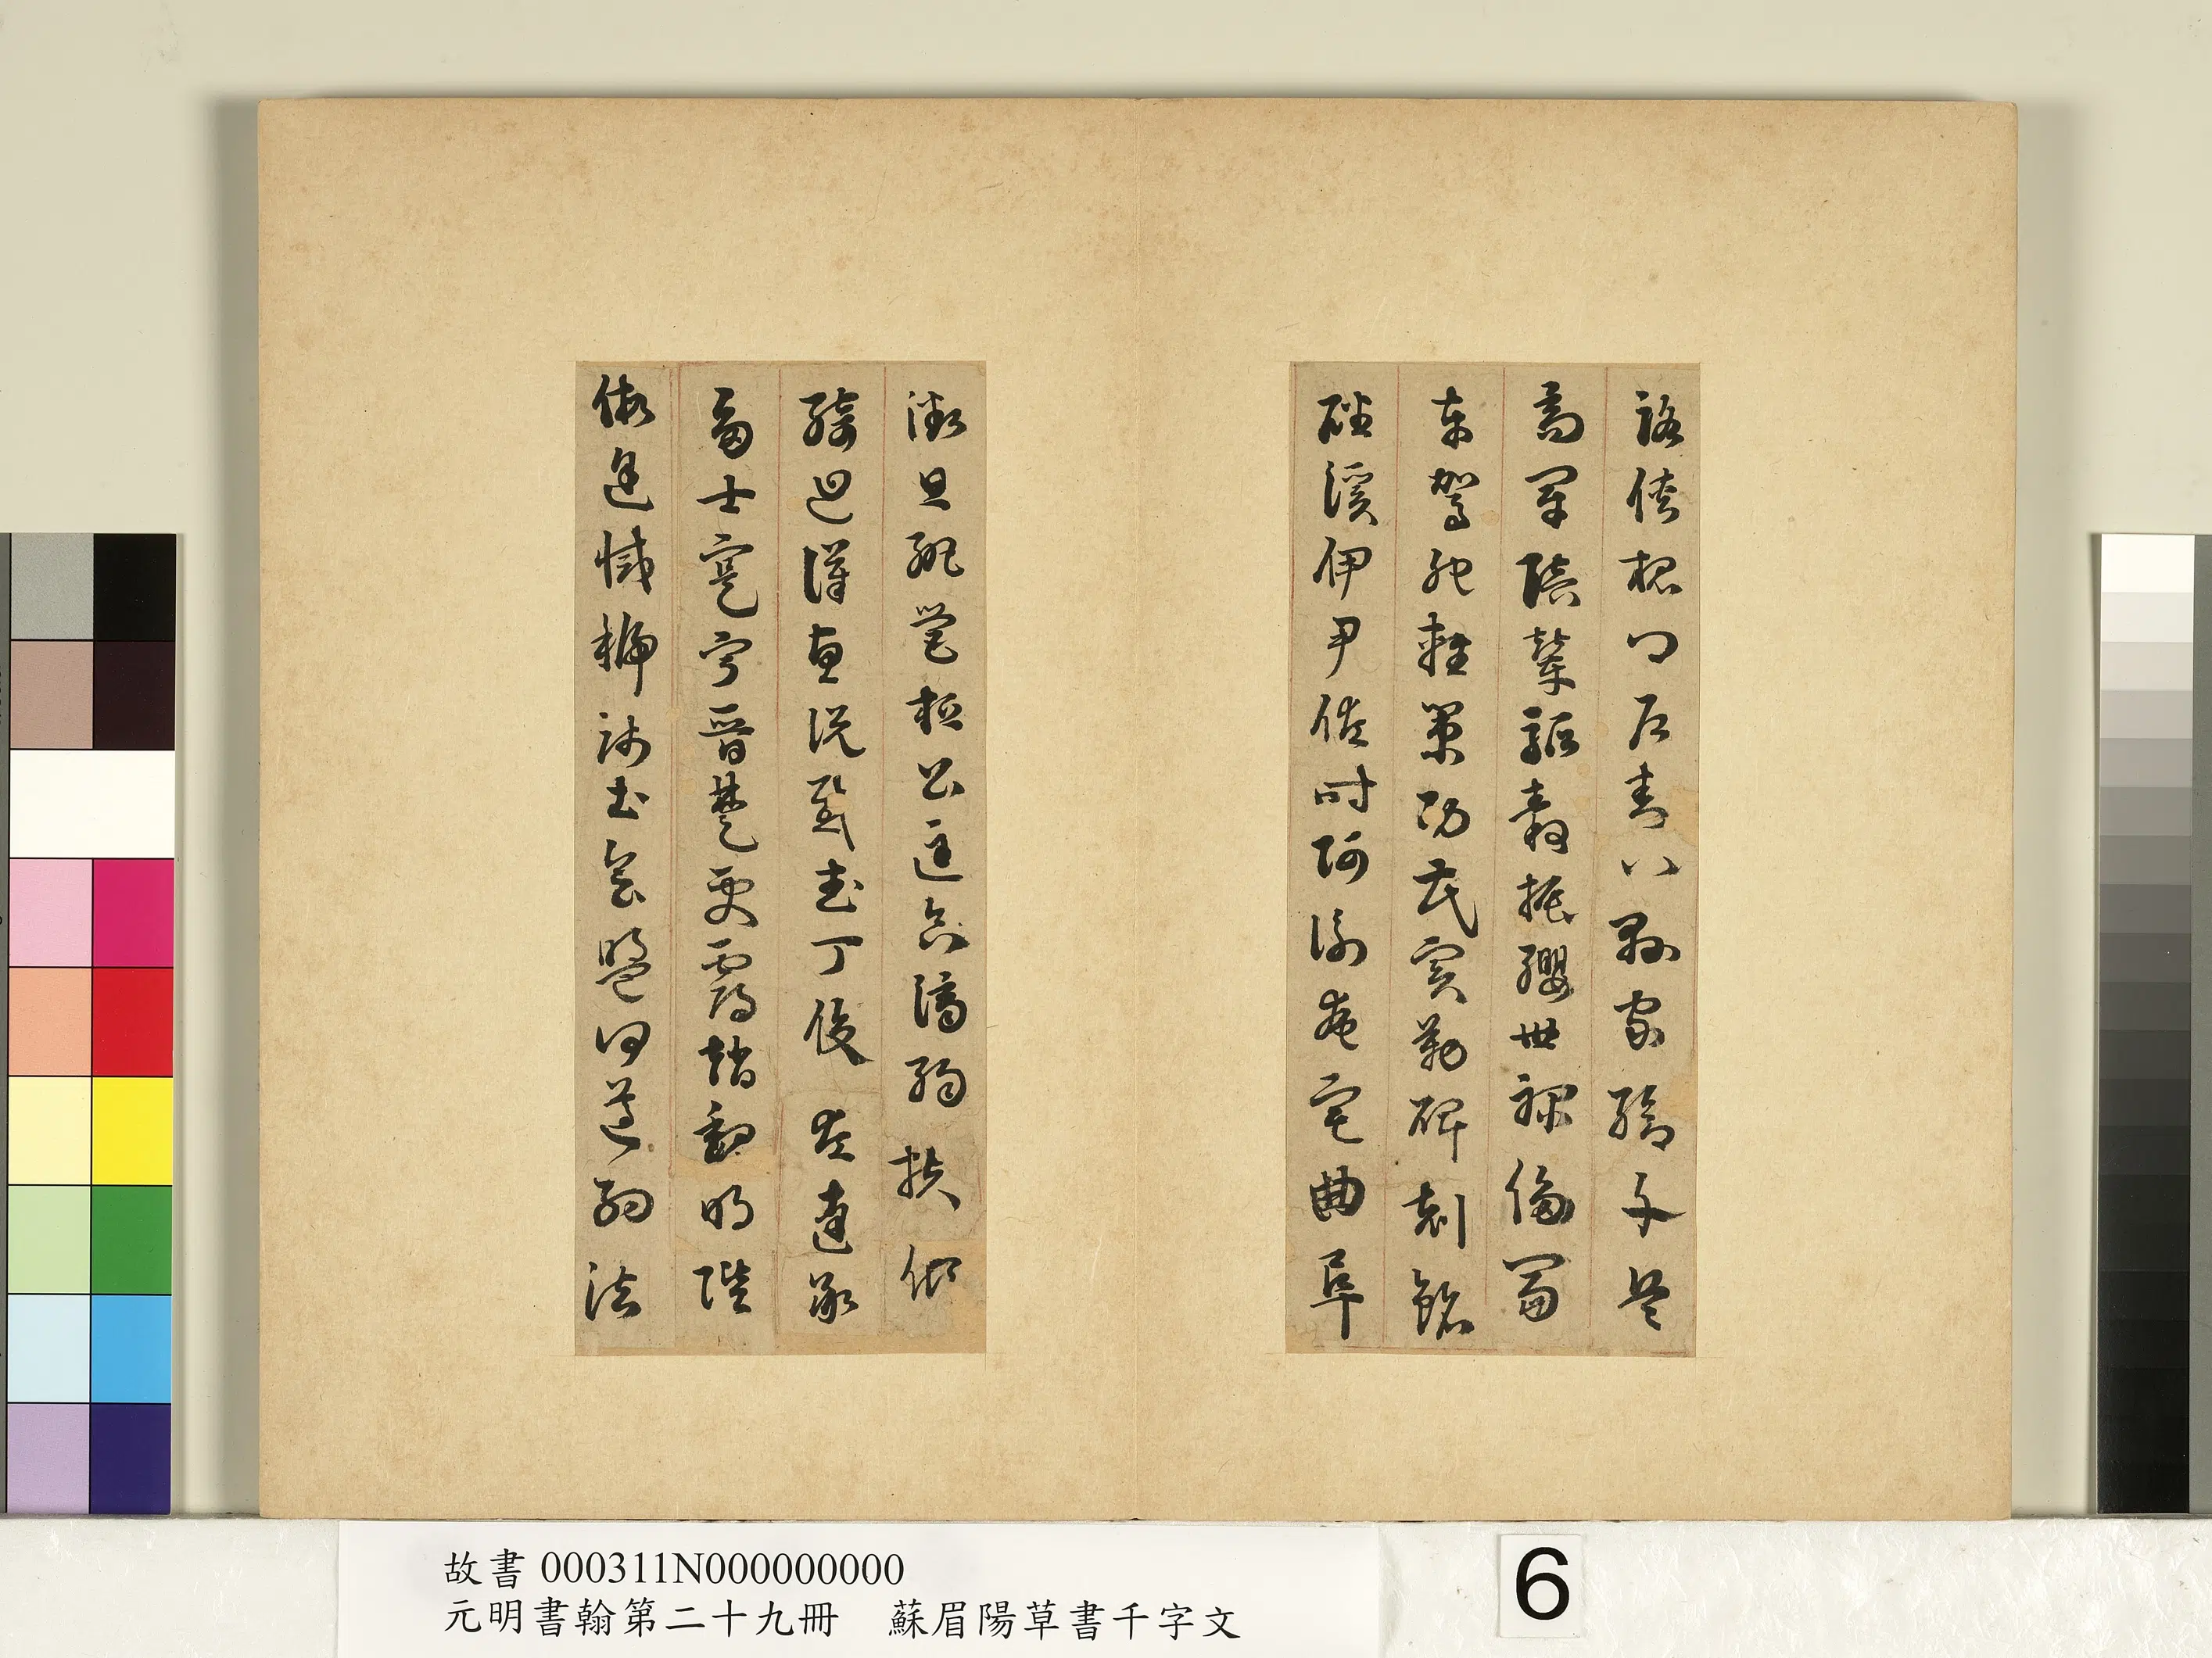 路俠槐卿戶封八縣家給千兵
高冠陪輦驅轂振纓世祿侈富
車駕肥輕策功茂實勒碑刻銘
磻溪伊尹佐時阿衡奄宅曲阜
微旦孰營桓公匡合濟弱扶傾
綺迴漢惠說感武丁俊左達承
多士寔寧晉楚更霸趙魏明陛
假途滅虢踐土會盟何遵約法
故書 000311N000000000
元明書翰第二十九冊 蘇眉陽草書千字文
6